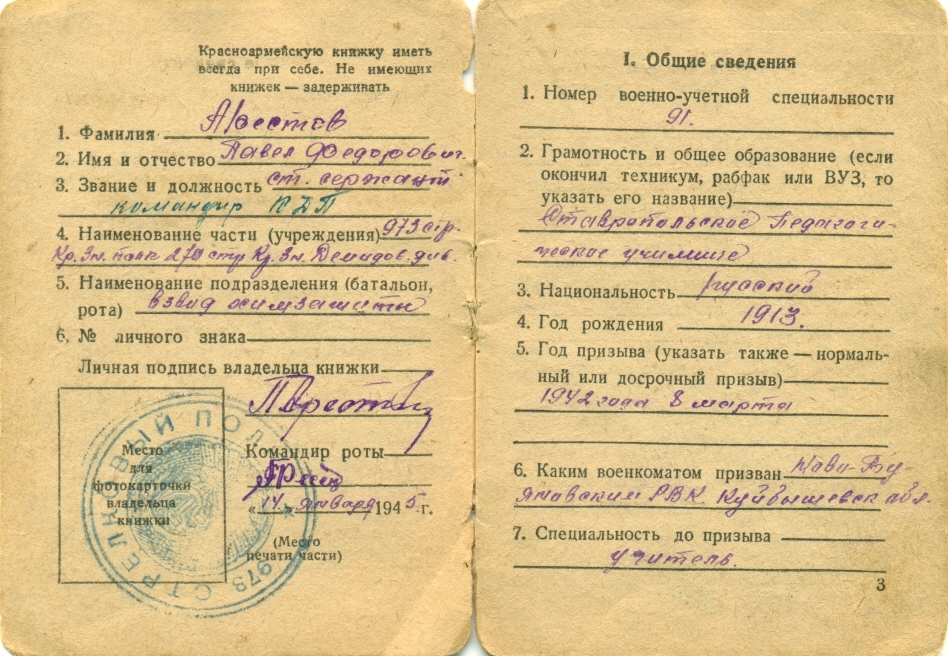 Красноармейскую книжку иметь
всегда при себе. Не имеющих
книжек — задерживать
1. Фамилия
2. Имя и отчество Павел Федорович
3. Звание и должность ст. сержант
командир
4. Наименование части (учреждения) 973 стр.
Кр. Зн. полк 270 стр Кр. Зн. Демидов. див.
5. Наименование подразделения (батальон,
рота) взвод химзащиты
6. № личного знака
Личная подпись владельца книжки
Командир роты
„14" января 1945 г.
(Место
печати части)
Место
для
фотокарточки
владельца
книжки
973 СТРЕЛКОВЫЙ ПОЛК
I. Общие сведения
1. Номер военно-учетной специальности
91.
2. Грамотность и общее образование (если
окончил техникум, рабфак или ВУЗ, то
указать его название)
Ставропольское Педагоги-
ческое училище
3. Национальность русский
4. Год рождения 1913.
5. Год призыва (указать также — нормаль-
ный или досрочный призыв)
1942 года 8 марта
6. Каким военкоматом призван Ново-Бу-
яновским РВК Куйбышевск обл.
7. Специальность до призыва
учитель.
3